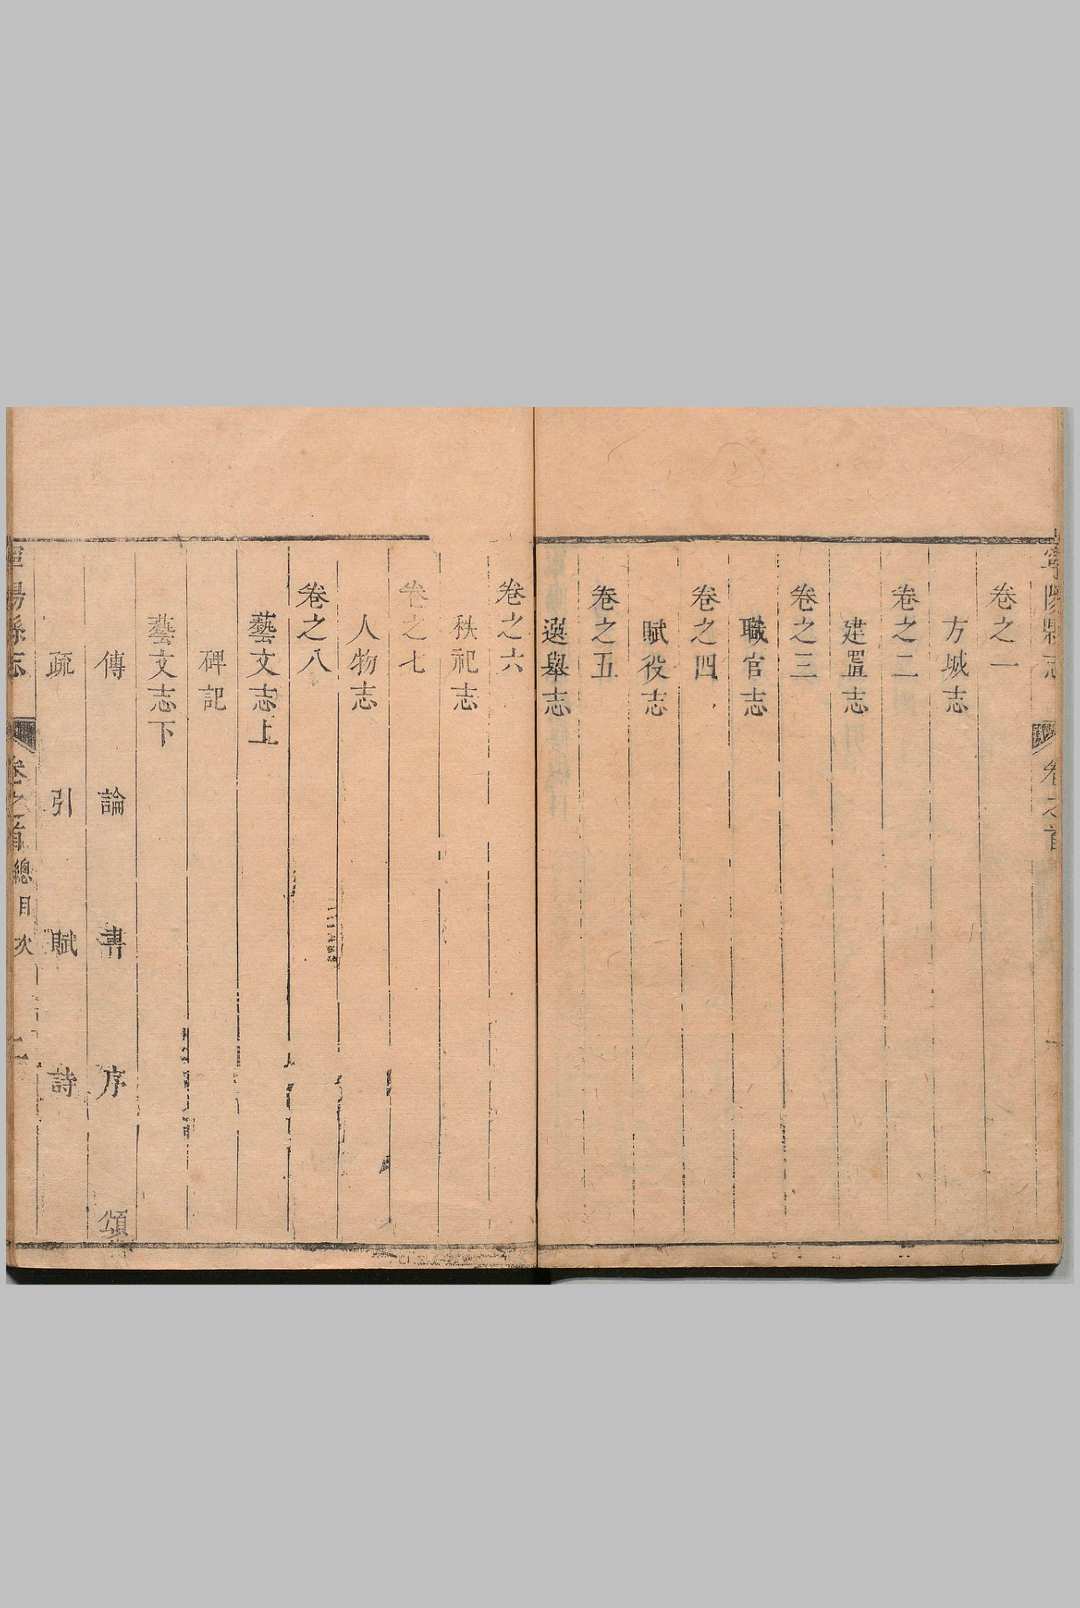 寧陽縣志 卷之首
卷之一
方域志
卷之二
建置志
卷之三
職官志
卷之四
賦役志
卷之五
選舉志
卷之六
秩祀志
卷之七
人物志
卷之八
藝文志上
碑記
藝文志下
傳 論 書 序 頌
疏 引 賦 詩
寧陽縣志 卷之首 總目次 二